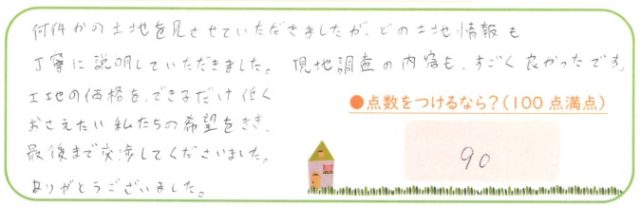 何件かの土地を見させていただきましたが、どの土地情報も
丁寧に説明していただきました。 現地調査の内容も、すごく良かったです。
土地の価格を、できるだけ低く
おさえたい私たちの希望をきき、
最後まで交渉してくださいました。
ありがとうございました。
●点数をつけるなら？(100点満点)
90